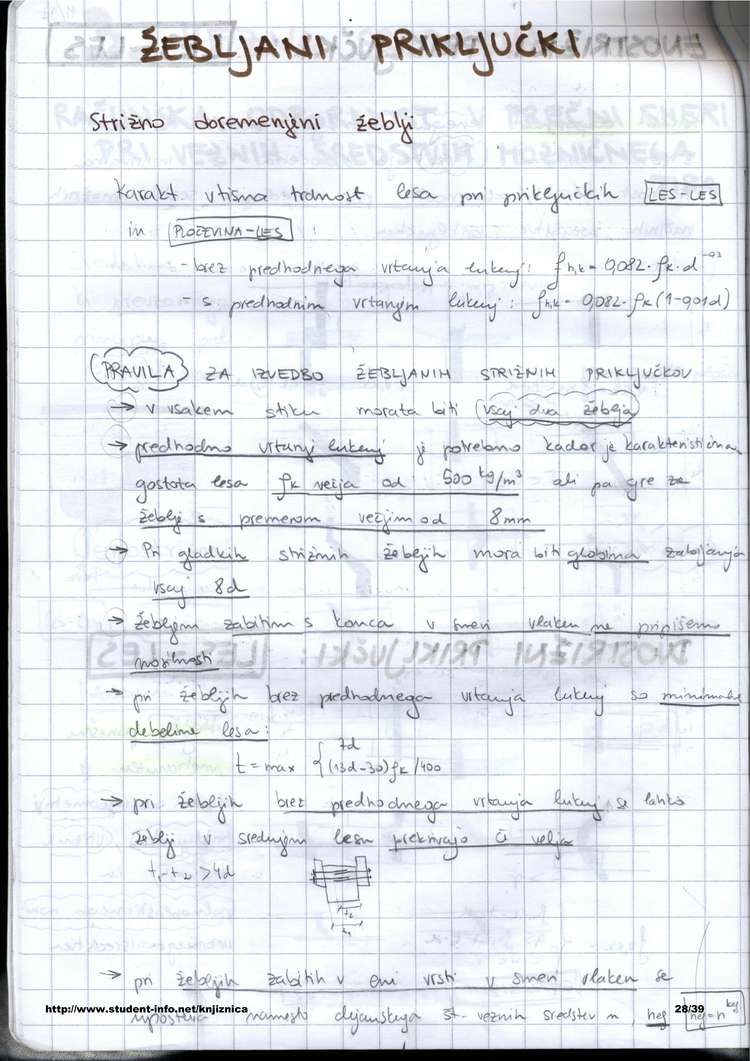 ŽEBLJANI PRIKLJUČKI
Strižno obremenjeni žeblji
Karakt vtisna trdnost lesa pri priključkih LES-LES
in PLOČEVINA-LES :
- brez predhodnega vrtanja lukenj: fh,k = 0,082·ρk·d^-0,3
- s predhodnim vrtanjem lukenj: fh,k = 0,082·ρk(1-0,01d)
PRAVILA ZA IZVEDBO ŽEBLJANIH STRIŽNIH PRIKLJUČKOV
→ v vsakem stiku morata biti vsaj dva žeblja
→ predhodno vrtanje lukenj je potrebno kadar je karakteristična
gostota lesa ρk večja od 500 kg/m³ ali pa gre za
žeblje s premerom večjim od 8mm
→ Pri gladkih strižnih žebljih mora biti globina zabijanja
vsaj 8d
→ žebljem zabitim s konca v smeri vlaken ne pripišemo
nosilnosti
→ pri žebljih brez predhodnega vrtanja lukenj so minimalne
debeline lesa:
t = max { 7d
(13d-30)ρk/400
→ pri žebljih brez predhodnega vrtanja lukenj se lahko
žeblji v srednjem lesu prekrivajo če velja
t1-t2 >4d
t2
t1
→ pri žebljih zabitih v eni vrsti v smeri vlaken se
upošteva namesto dejanskega št. veznih sredstev n, nef nef=n^kef
http://www.student-info.net/knjiznica 28/39